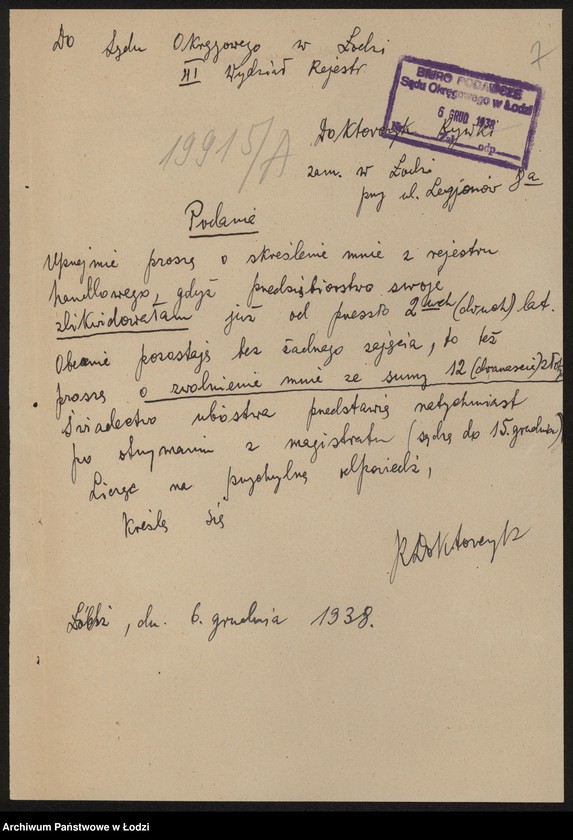 Do Sądu Okręgowego w Łodzi
III Wydział Rejestr.
7
BIURO PODAWCZE
Sądu Okręgowego w Łodzi
6 GRUD 1938
Nr. zał. odp.
19915/A
Doktorczyk Rywki
zam. w Łodzi
przy ul. Legjonów 8a
Podanie
Uprzejmie proszę o skreślenie mnie z rejestru
handlowego, gdyż przedsiębiorstwo swoje
zlikwidowałam już od przeszło 2uch (dwuch) lat.
Obecnie pozostaję bez żadnego zajęcia, to też
proszę o zwolnienie mnie ze sumy 12 (dwanaście) złot
Świadectwo ubóstwa przedstawię natychmiast
po otrzymaniu z magistratu (sądzę do 15. grudnia)
Licząc na przychylną odpowiedź,
Kreślę się
R Doktorczyk
Łódź, dn. 6. grudnia 1938.
Archiwum Państwowe w Łodzi